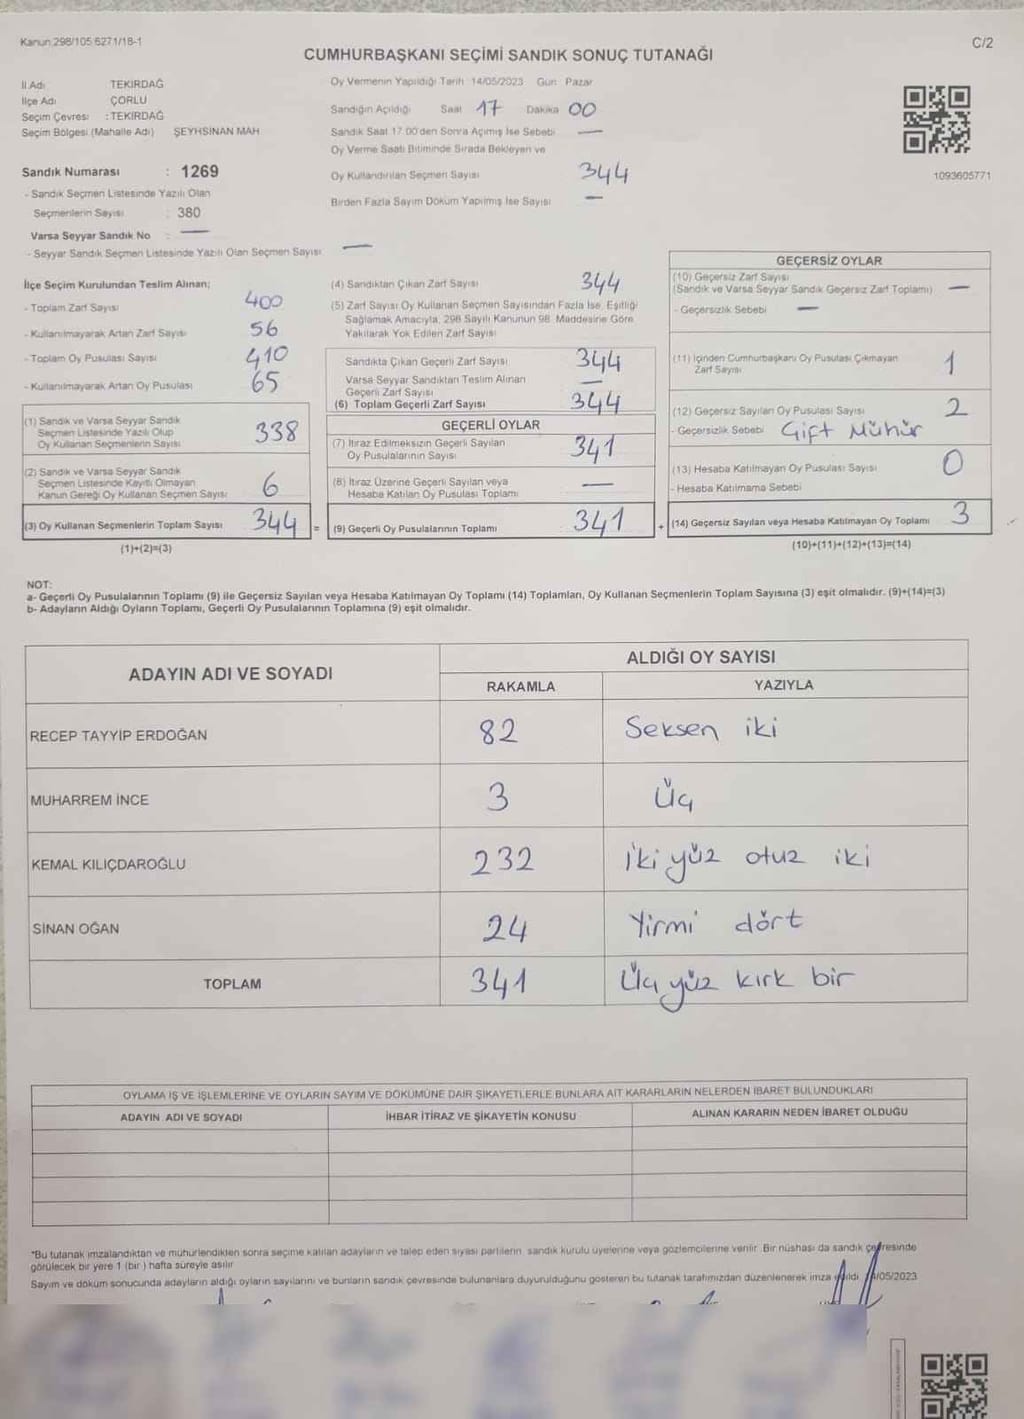 Kanun 298/105 6271/18-1
C/2
CUMHURBAŞKANI SEÇİMİ SANDIK SONUÇ TUTANAĞI
İl Adı TEKİRDAĞ
İlçe Adı ÇORLU
Seçim Çevresi : TEKİRDAĞ
Seçim Bölgesi (Mahalle Adı) ŞEYHSİNAN MAH
Oy Vermenin Yapıldığı Tarih 14/05/2023 Gün Pazar
Sandığın Açıldığı Saat 17 Dakika 00
Sandık Saat 17.00'den Sonra Açılmış İse Sebebi —
Oy Verme Saati Bitiminde Sırada Bekleyen ve
Oy Kullandırılan Seçmen Sayısı 344
Birden Fazla Sayım Döküm Yapılmış İse Sayısı —
1093605771
Sandık Numarası : 1269
- Sandık Seçmen Listesinde Yazılı Olan
Seçmenlerin Sayısı : 380
Varsa Seyyar Sandık No : —
- Seyyar Sandık Seçmen Listesinde Yazılı Olan Seçmen Sayısı —
İlçe Seçim Kurulundan Teslim Alınan;
- Toplam Zarf Sayısı 400
- Kullanılmayarak Artan Zarf Sayısı 56
- Toplam Oy Pusulası Sayısı 410
- Kullanılmayarak Artan Oy Pusulası 65
(1) Sandık ve Varsa Seyyar Sandık
Seçmen Listesinde Yazılı Olup
Oy Kullanan Seçmenlerin Sayısı 338
(2) Sandık ve Varsa Seyyar Sandık
Seçmen Listesinde Kayıtlı Olmayan
Kanun Gereği Oy Kullanan Seçmen Sayısı 6
(3) Oy Kullanan Seçmenlerin Toplam Sayısı 344 =
(1)+(2)=(3)
(4) Sandıktan Çıkan Zarf Sayısı 344
(5) Zarf Sayısı Oy Kullanan Seçmen Sayısından Fazla İse, Eşitliği
Sağlamak Amacıyla, 298 Sayılı Kanunun 98. Maddesine Göre
Yakılarak Yok Edilen Zarf Sayısı
Sandıkta Çıkan Geçerli Zarf Sayısı 344
Varsa Seyyar Sandıktan Teslim Alınan
Geçerli Zarf Sayısı —
(6) Toplam Geçerli Zarf Sayısı 344
GEÇERLİ OYLAR
(7) İtiraz Edilmeksizin Geçerli Sayılan
Oy Pusulalarının Sayısı 341
(8) İtiraz Üzerine Geçerli Sayılan veya
Hesaba Katılan Oy Pusulası Toplamı —
(9) Geçerli Oy Pusulalarının Toplamı 341 +
GEÇERSİZ OYLAR
(10) Geçersiz Zarf Sayısı
(Sandık ve Varsa Seyyar Sandık Geçersiz Zarf Toplamı) —
- Geçersizlik Sebebi —
(11) İçinden Cumhurbaşkanı Oy Pusulası Çıkmayan
Zarf Sayısı 1
(12) Geçersiz Sayılan Oy Pusulası Sayısı 2
- Geçersizlik Sebebi Çift Mühür
(13) Hesaba Katılmayan Oy Pusulası Sayısı 0
- Hesaba Katılmama Sebebi
(14) Geçersiz Sayılan veya Hesaba Katılmayan Oy Toplamı 3
(10)+(11)+(12)+(13)=(14)
NOT:
a- Geçerli Oy Pusulalarının Toplamı (9) ile Geçersiz Sayılan veya Hesaba Katılmayan Oy Toplamı (14) Toplamları, Oy Kullanan Seçmenlerin Toplam Sayısına (3) eşit olmalıdır. (9)+(14)=(3)
b- Adayların Aldığı Oyların Toplamı, Geçerli Oy Pusulalarının Toplamına (9) eşit olmalıdır.
ADAYIN ADI VE SOYADI
ALDIĞI OY SAYISI
RAKAMLA YAZIYLA
RECEP TAYYİP ERDOĞAN 82 Seksen iki
MUHARREM İNCE 3 Üç
KEMAL KILIÇDAROĞLU 232 İki yüz otuz iki
SİNAN OĞAN 24 Yirmi dört
TOPLAM 341 Üç yüz kırk bir
OYLAMA İŞ VE İŞLEMLERİNE VE OYLARIN SAYIM VE DÖKÜMÜNE DAİR ŞİKAYETLERLE BUNLARA AİT KARARLARIN NELERDEN İBARET BULUNDUKLARI
ADAYIN ADI VE SOYADI İHBAR İTİRAZ VE ŞİKAYETİN KONUSU ALINAN KARARIN NEDEN İBARET OLDUĞU
*Bu tutanak imzalandıktan ve mühürlendikten sonra seçime katılan adayların ve talep eden siyasi partilerin sandık kurulu üyelerine veya gözlemcilerine verilir. Bir nüshası da sandık çevresinde
görülecek bir yere 1 (bir) hafta süreyle asılır
Sayım ve döküm sonucunda adayların aldığı oyların sayılarını ve bunların sandık çevresinde bulunanlara duyurulduğunu gösteren bu tutanak tarafımızdan düzenlenerek imza edildi. /05/2023